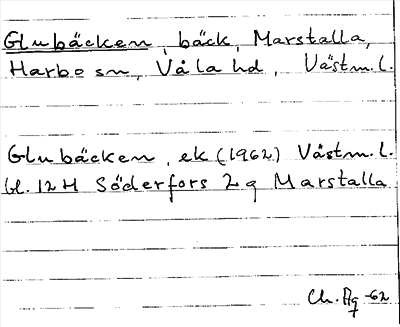 Glubäcken, bäck, Marstalla,
Harbo sn, Våla hd, Västm.l.
Glubäcken, ek (1962) Västm.l.
bl. 12H Söderfors 2g Marstalla
Ch. -62